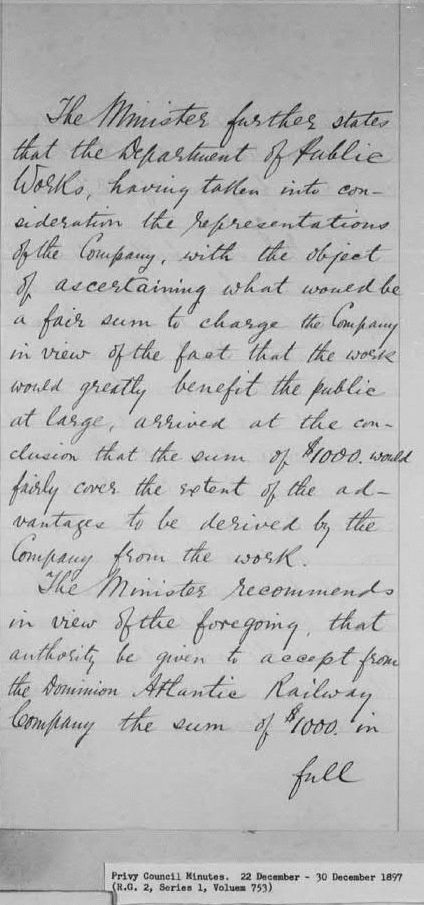 The Minister further states
that the Department of Public
Works, having taken into con-
sideration the representations
of the Company, with the object
of ascertaining what would be
a fair sum to charge the Company
in view of the fact that the work
would greatly benefit the public
at large, arrived at the con-
clusion that the sum of $1000. would
fairly cover the extent of the ad-
vantages to be derived by the
Company from the work.
The Minister recommends
in view of the foregoing, that
authority be given to accept from
the Dominion Atlantic Railway
Company the sum of $1000. in
full
Privy Council Minutes. 22 December - 30 December 1897
(R.G. 2, Series 1, Voluem 753)